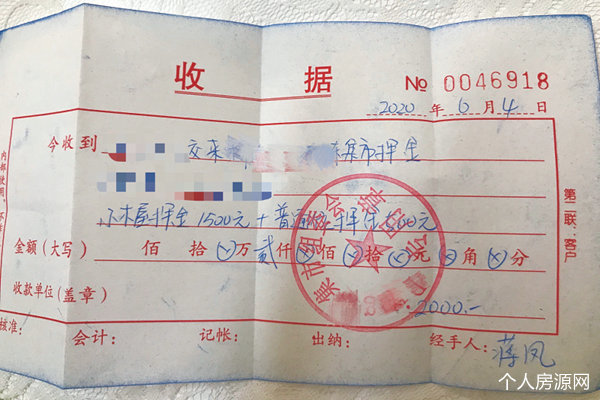 收据
№ 0046918
2020 年 6 月 4 日
今收到 交来 集市押金
小木屋押金 1500元 + 普 押金500元
金额(大写) 佰 拾 ⊗ 万 贰 仟 ⊗ 佰 ⊗ 拾 ⊗ 元 ⊗ 角 ⊗ 分
收款单位(盖章) 2000.-
核准: 会计: 记帐: 出纳: 经手人: 蒋凤
第二联:客户
内部使用,
个人房源网